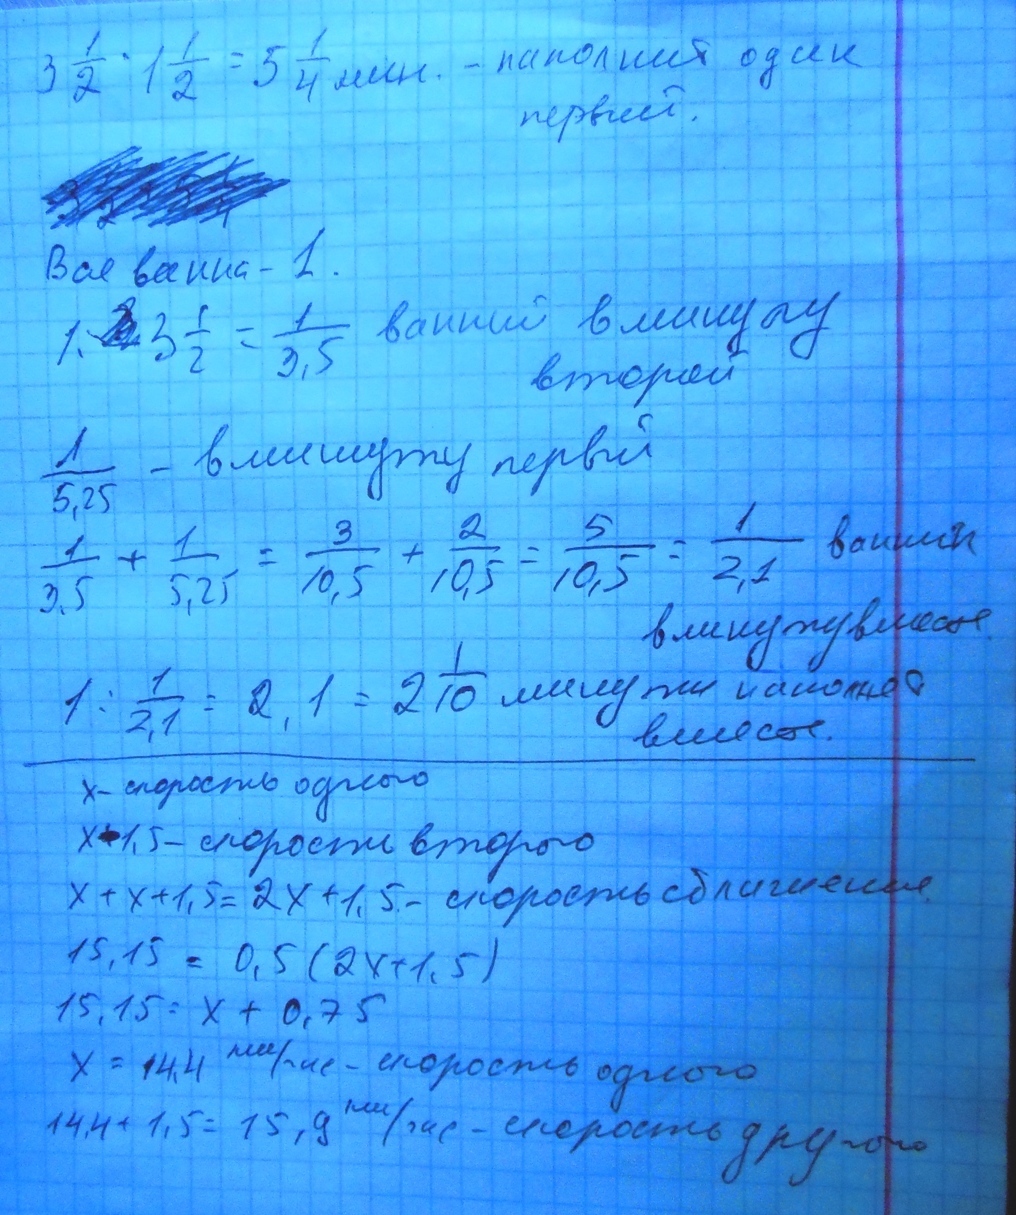 3 1/2 · 1 1/2 = 5 1/4 мин. - наполнит один
первый.
Вся ванна - 1.
1 : 3 1/2 = 1/3,5 ванны в минуту
второй
1/5,25 - в минуту первый
1/3,5 + 1/5,25 = 3/10,5 + 2/10,5 = 5/10,5 = 1/2,1 ванны
в минуту вместе.
1 : 1/2,1 = 2,1 = 2 1/10 минуты наполнят
вместе.
x - скорость одного
x+1,5 - скорость второго
x + x + 1,5 = 2x + 1,5 - скорость сближения.
15,15 = 0,5 (2x+1,5)
15,15 = x + 0,75
x = 14,4 км/час - скорость одного
14,4 + 1,5 = 15,9 км/час - скорость другого